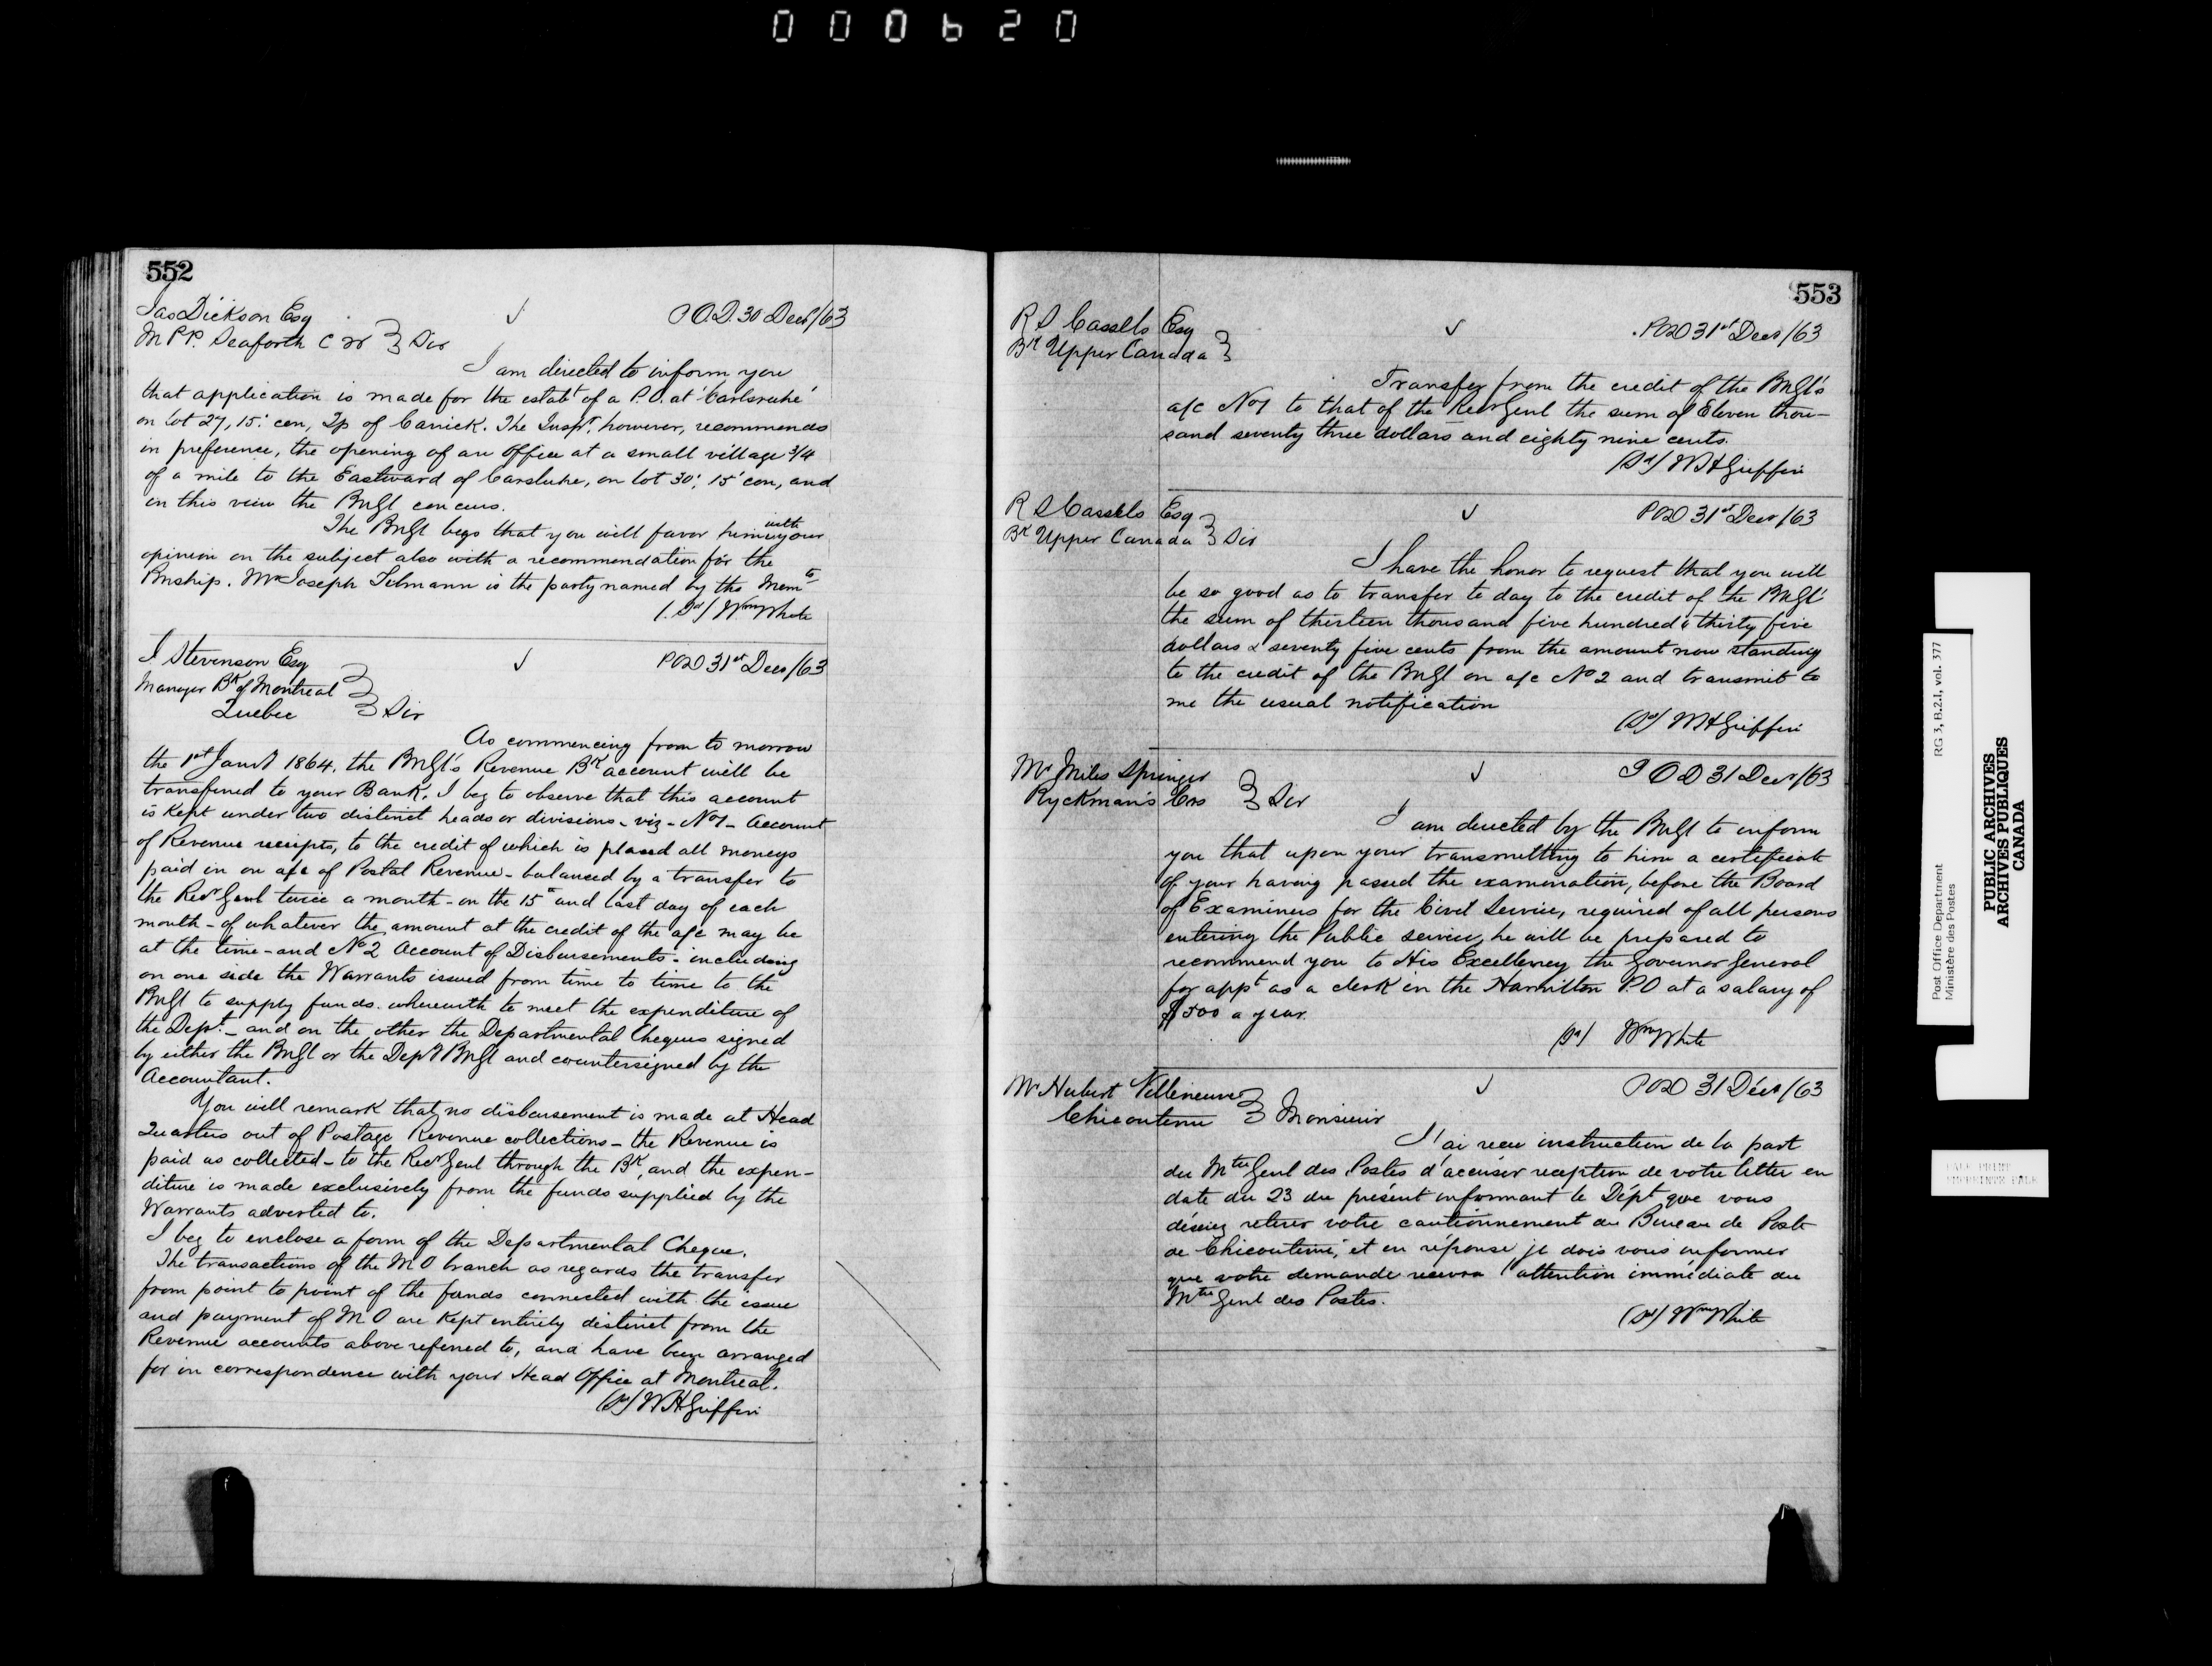 000620
552
Jas Dickson Esq
M P P. Seaforth C W } Sir
P.O.D. 30 Decr/63
I am directed to inform you
that application is made for the estabt of a P.O. at 'Carlsruhe'
on lot 27, 15: con, Tp of Carrick. The Inspr. however, recommends
in preference, the opening of an Office at a small village 3/4
of a mile to the Eastward of Carslruhe, on lot 30', 15' con, and
in this view the PMGl concurs.
The PMGl begs that you will favor him with your
opinion on the subject also with a recommendation for the
Pmship. Mr Joseph Lilmann is the party named by the Memts
(Sd) Wm White
J Stevenson Esq
Manager Bk of Montreal
Quebec } Sir
POD 31st Decr/63
As commencing from to morrow
the 1st Jany 1864, the PMGl's Revenue Bk account will be
transferred to your Bank. I beg to observe that this account
is kept under two distinct heads or divisions - viz - No 1 - Account
of Revenue receipts, to the credit of which is placed all moneys
paid in on a/c of Postal Revenue - balanced by a transfer to
the Recr Genl twice a month - on the 15th and last day of each
month - of whatever the amount at the credit of the a/c may be
at the time - and No 2 Account of Disbursements - including
on one side the Warrants issued from time to time to the
PMGl to supply funds wherewith to meet the expenditure of
the Dept. - and on the other the Departmental Cheques signed
by either the PMGl or the Depy PMGl and countersigned by the
Accountant.
You will remark that no disbursement is made at Head
Quarters out of Postage Revenue collections - the Revenue is
paid as collected - to the Recr Genl through the Bk, and the expen-
diture is made exclusively from the funds supplied by the
Warrants adverted to.
I beg to enclose a form of the Departmental Cheque.
The transactions of the M O branch as regards the transfer
from point to point of the funds connected with the issue
and payment of M O are kept entirely distinct from the
Revenue accounts above referred to, and have been arranged
for in correspondence with your Head Office at Montreal.
(Sd) W H Griffin
553
R S Cassels Esq
Bk Upper Canada }
POD 31st Decr/63
Transfer from the credit of the PMGl's
a/c No 1 to that of the Recr Genl the sum of Eleven thou-
sand seventy three dollars and eighty nine cents.
(Sd) W H Griffin
R S Cassels Esq
Bk Upper Canada } Sir
POD 31st Decr/63
I have the honor to request that you will
be so good as to transfer to day to the credit of the PMGl
the sum of thirteen thousand five hundred & thirty five
dollars & seventy five cents from the amount now standing
to the credit of the PMGl on a/c No 2 and transmit to
me the usual notification
(Sd) W H Griffin
Mr Miles Springer
Ryckman's Cors } Sir
P O D 31 Decr/63
I am directed by the PMGl to inform
you that upon your transmitting to him a certificate
of your having passed the examination, before the Board
of Examiners for the Civil Service, required of all persons
entering the Public service, he will be prepared to
recommend you to His Excellency the Governor General
for appt as a clerk in the Hamilton P.O at a salary of
$500 a year.
(Sd) Wm White
Mr Hubert Villeneuve
Chicoutimi } Monsieur
POD 31 Décr/63
J'ai recu instruction de la part
du Mtre Genl des Postes d'accuser reception de votre letter en
date du 23 du présent informant le Dépt que vous
désirez retirer votre cautionnement du Bureau de Poste
de Chicoutimi, et en réponse je dois vous informer
que votre demande recevra l'attention immédiate du
Mtre Genl des Postes.
(Sd) Wm White
Post Office Department
Ministère des Postes
RG 3, B.2.1, vol. 377
PUBLIC ARCHIVES
ARCHIVES PUBLIQUES
CANADA